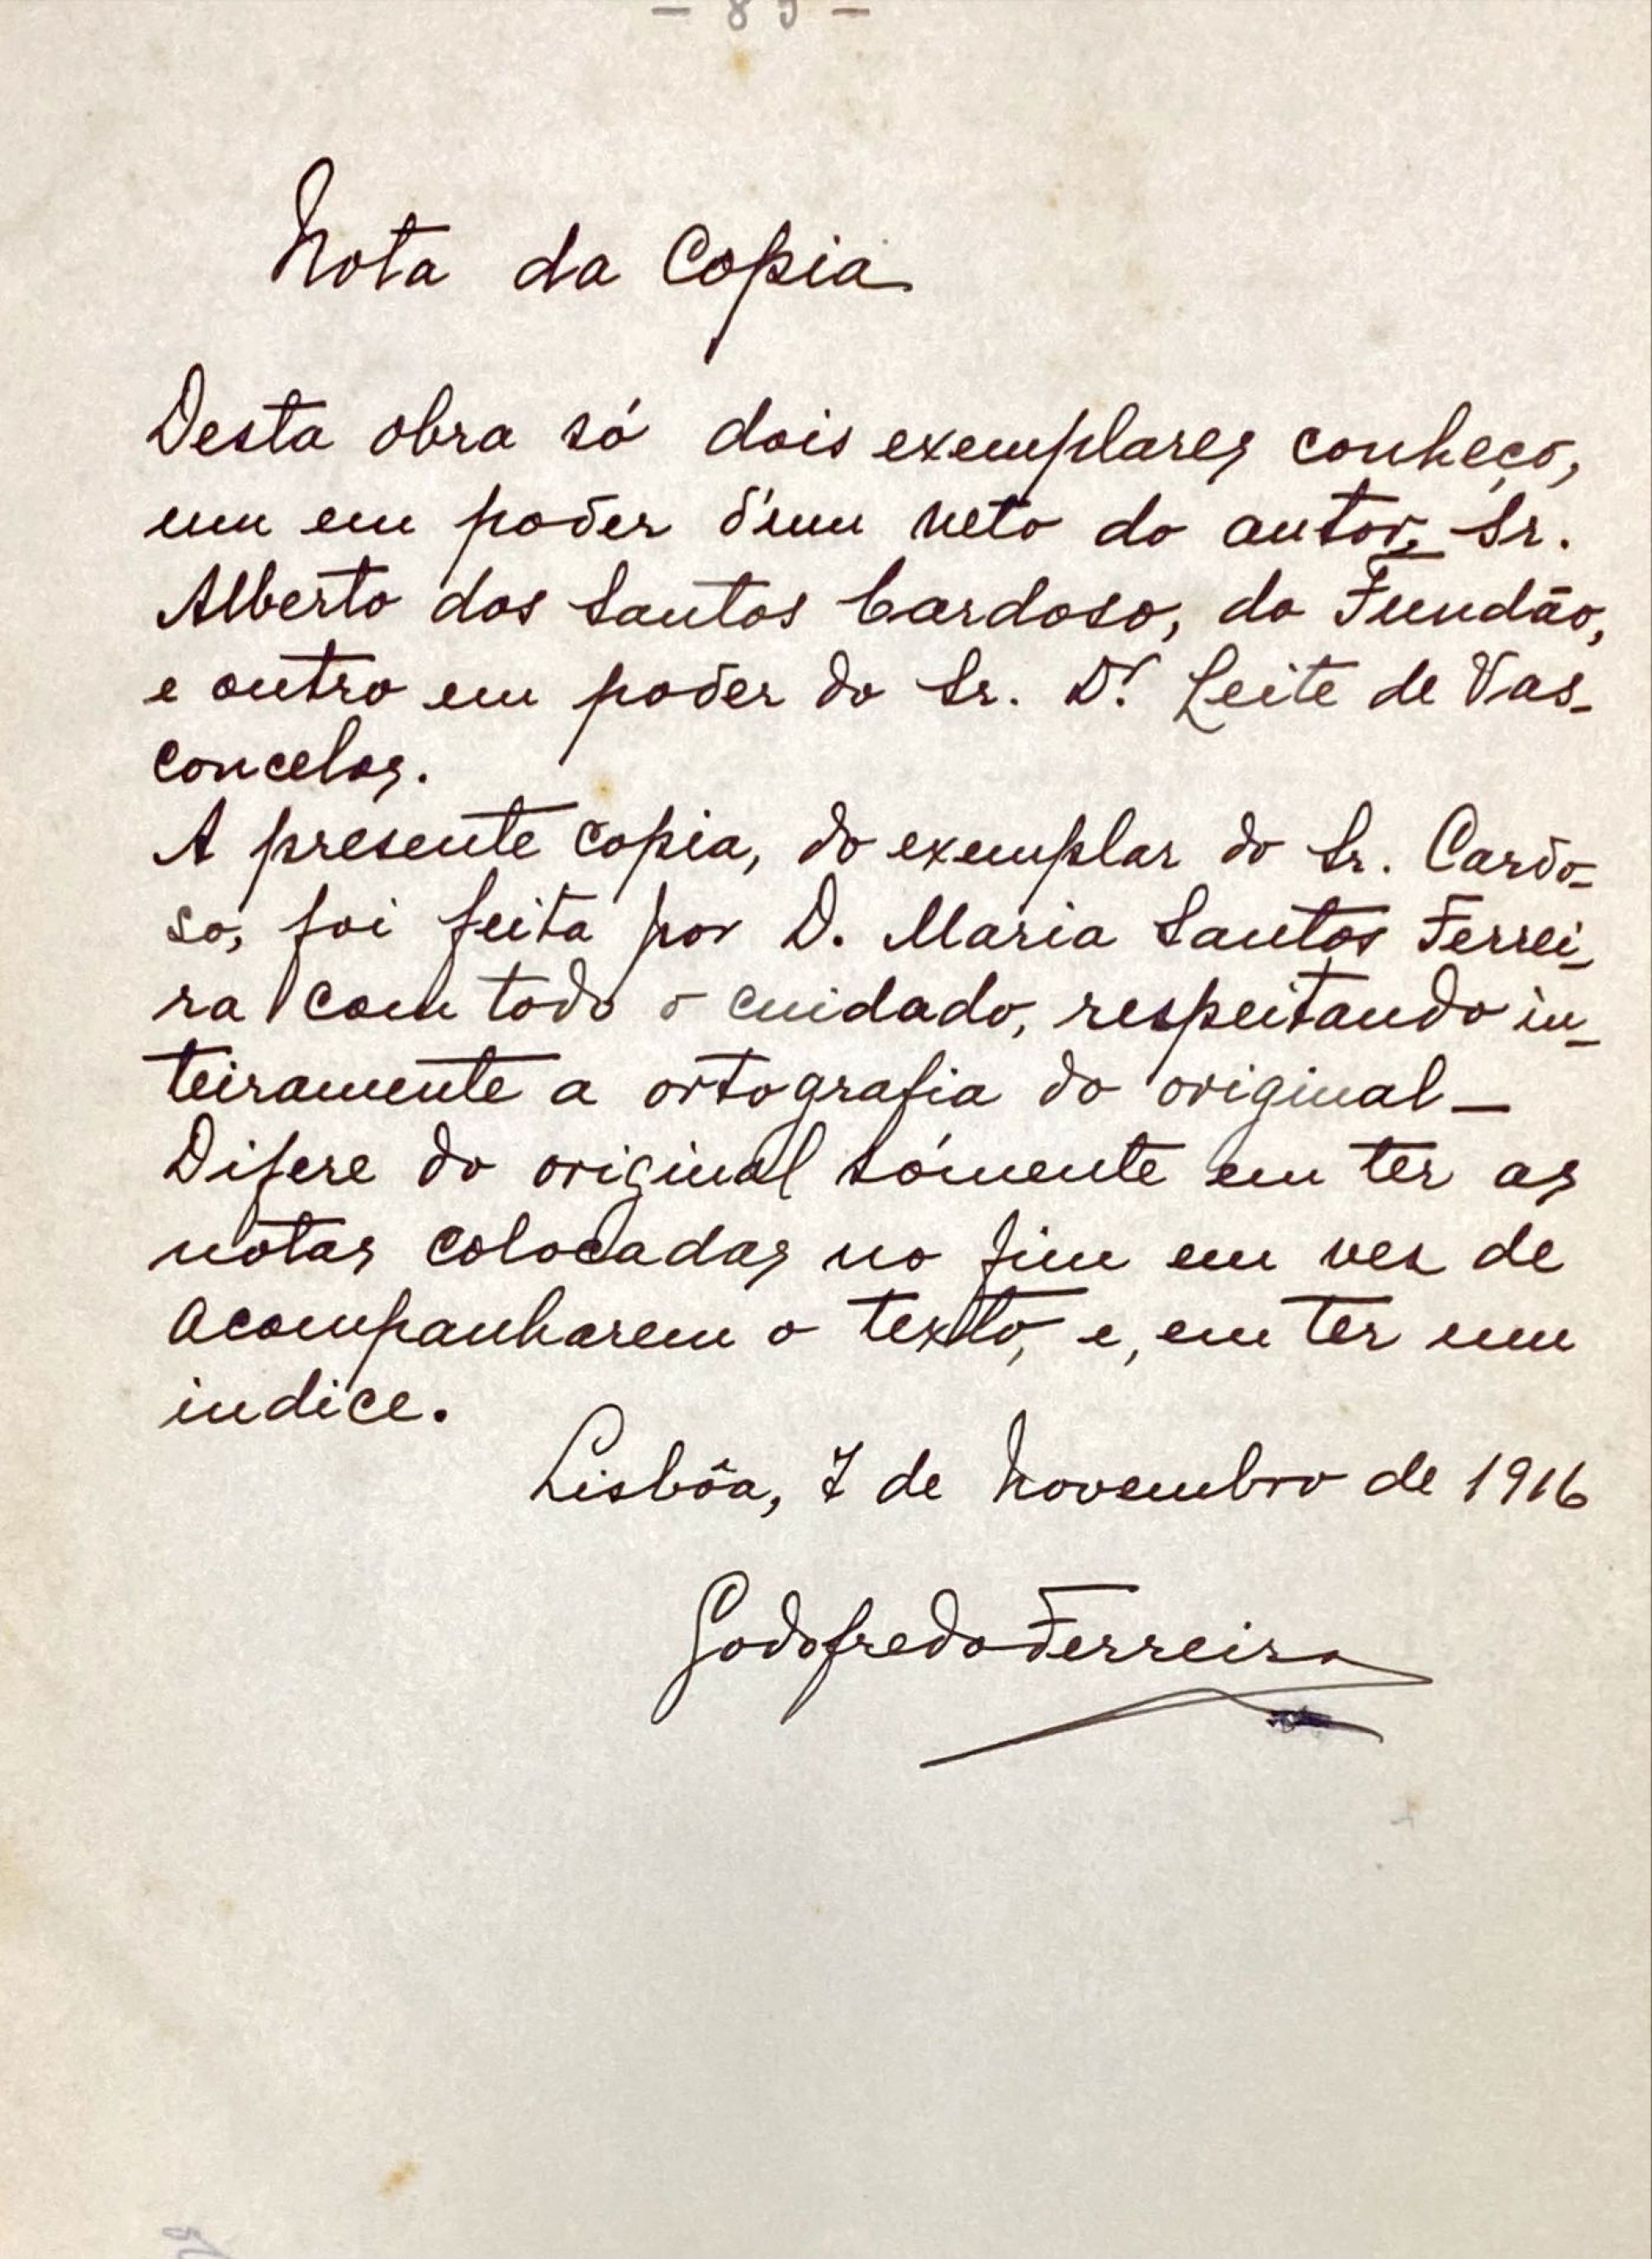 - 85 -
Nota da Copia
Desta obra só dois exemplares conheço,
um em poder d'um neto do autor, Sr.
Alberto dos Santos Cardoso, do Fundão,
e outro em poder do Sr. Dr. Leite de Vas-
concelos.
A presente copia, do exemplar do Sr. Cardo-
so, foi feita por D. Maria Santos Ferrei-
ra com todo o cuidado, respeitando in-
teiramente a ortografia do original—
Difere do original sómente em ter as
notas colocadas no fim em vez de
acompanharem o texto, e, em ter um
indice.
Lisbôa, 7 de Novembro de 1916
Godofredo Ferreira